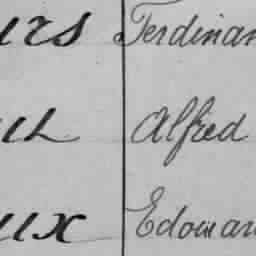 urs Ferdinan
Alfred
ux Edouar